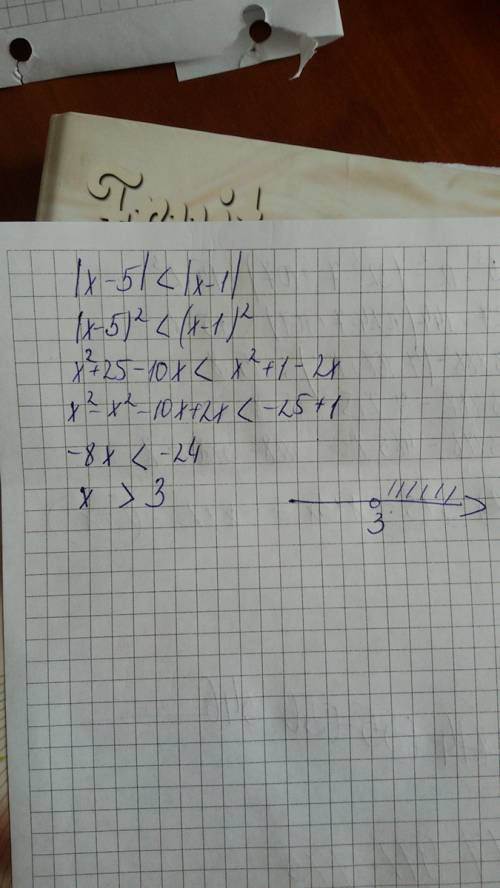 |x-5|<|x-1|
(x-5)²<(x-1)²
x²+25-10x< x²+1-2x
x²-x²-10x+2x<-25+1
-8x<-24
x >3
3